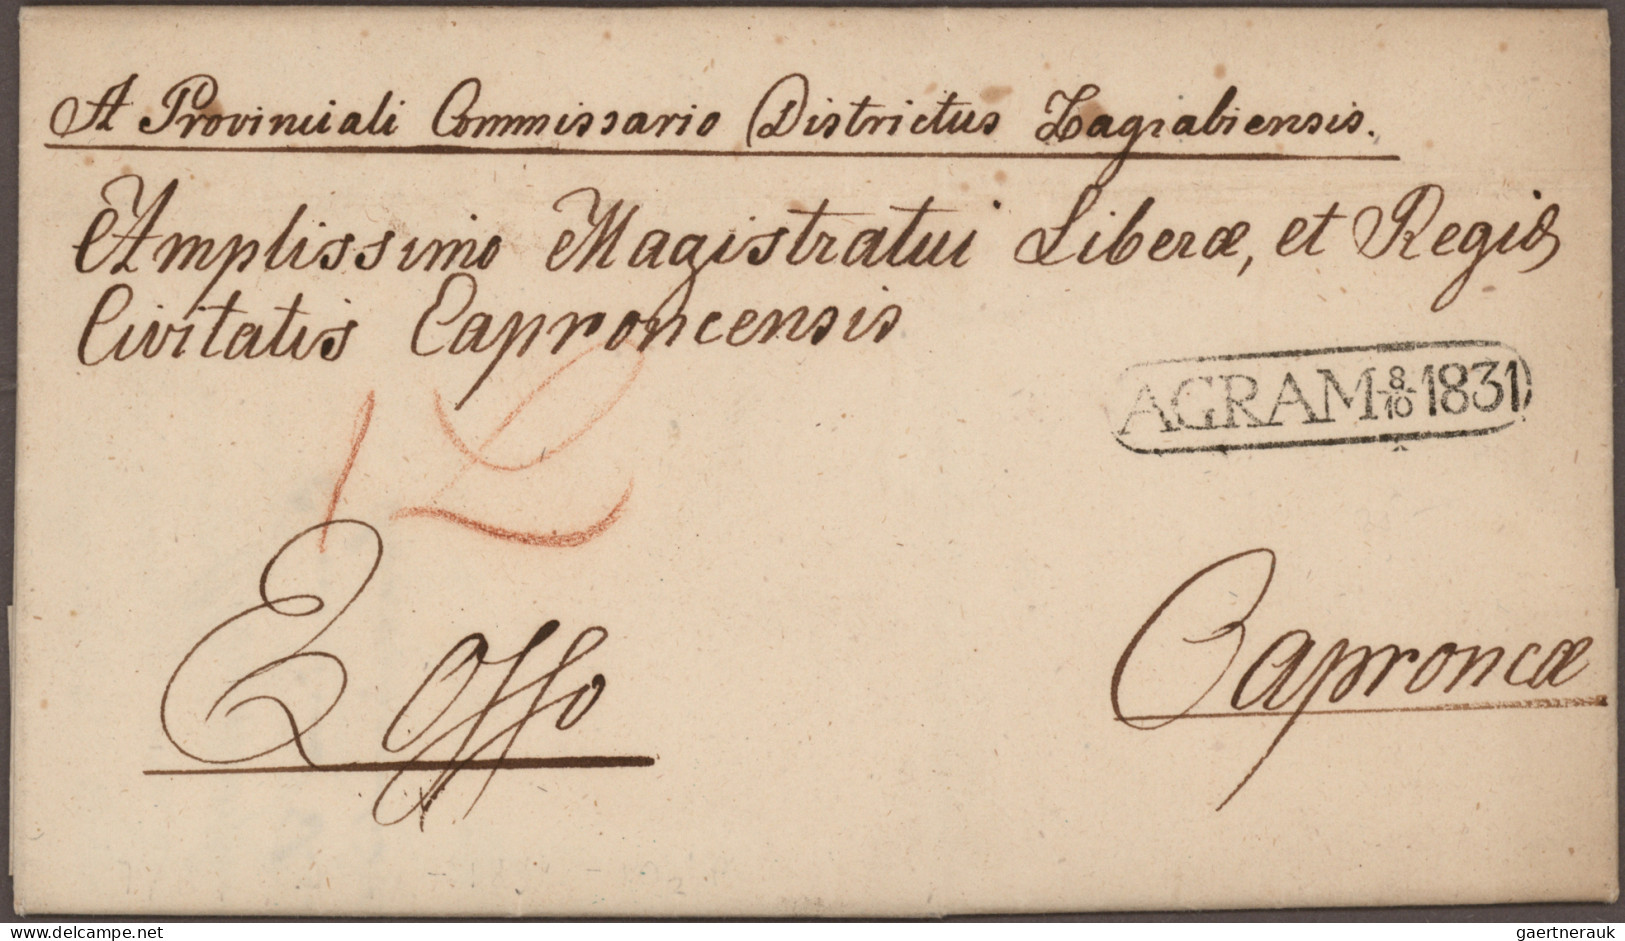 A Provinciali Commissario Districtus Zagrabiensis.
Amplissimo Magistratui Liberæ, et Regiæ
Civitatis Caproncensis
AGRAM 8/10 1831
12
Ex Offo
Caproncæ
delcampe.net
gaertnerauk